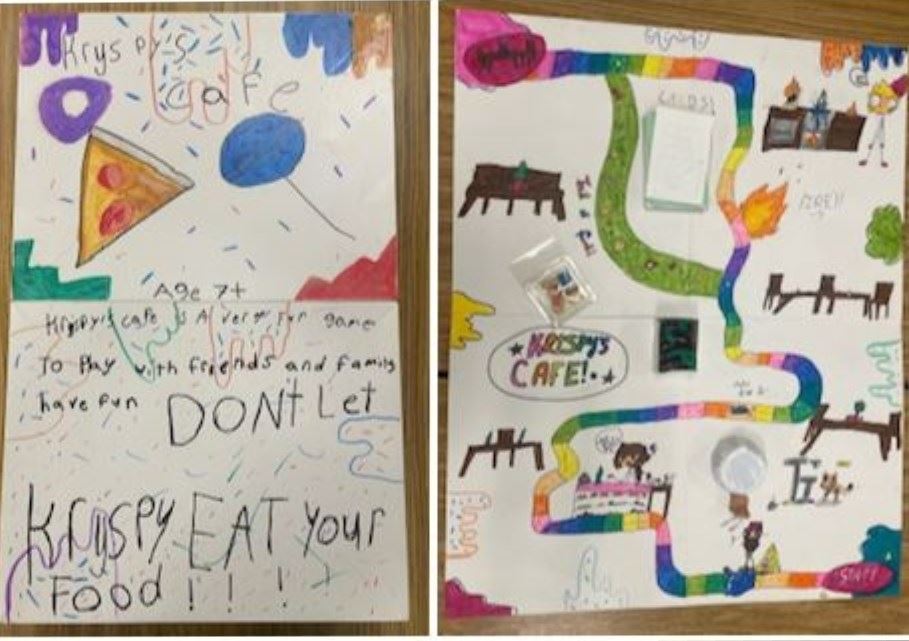 Kryspy's
Cafe
Age 7+
Kryspy's cafe is A very fun game
To Play with friends and family
have fun
DONt Let
KrysPY EAT your
Food!!!
CARDS!
FIRE!!
KRISPY'S
CAFE!
START